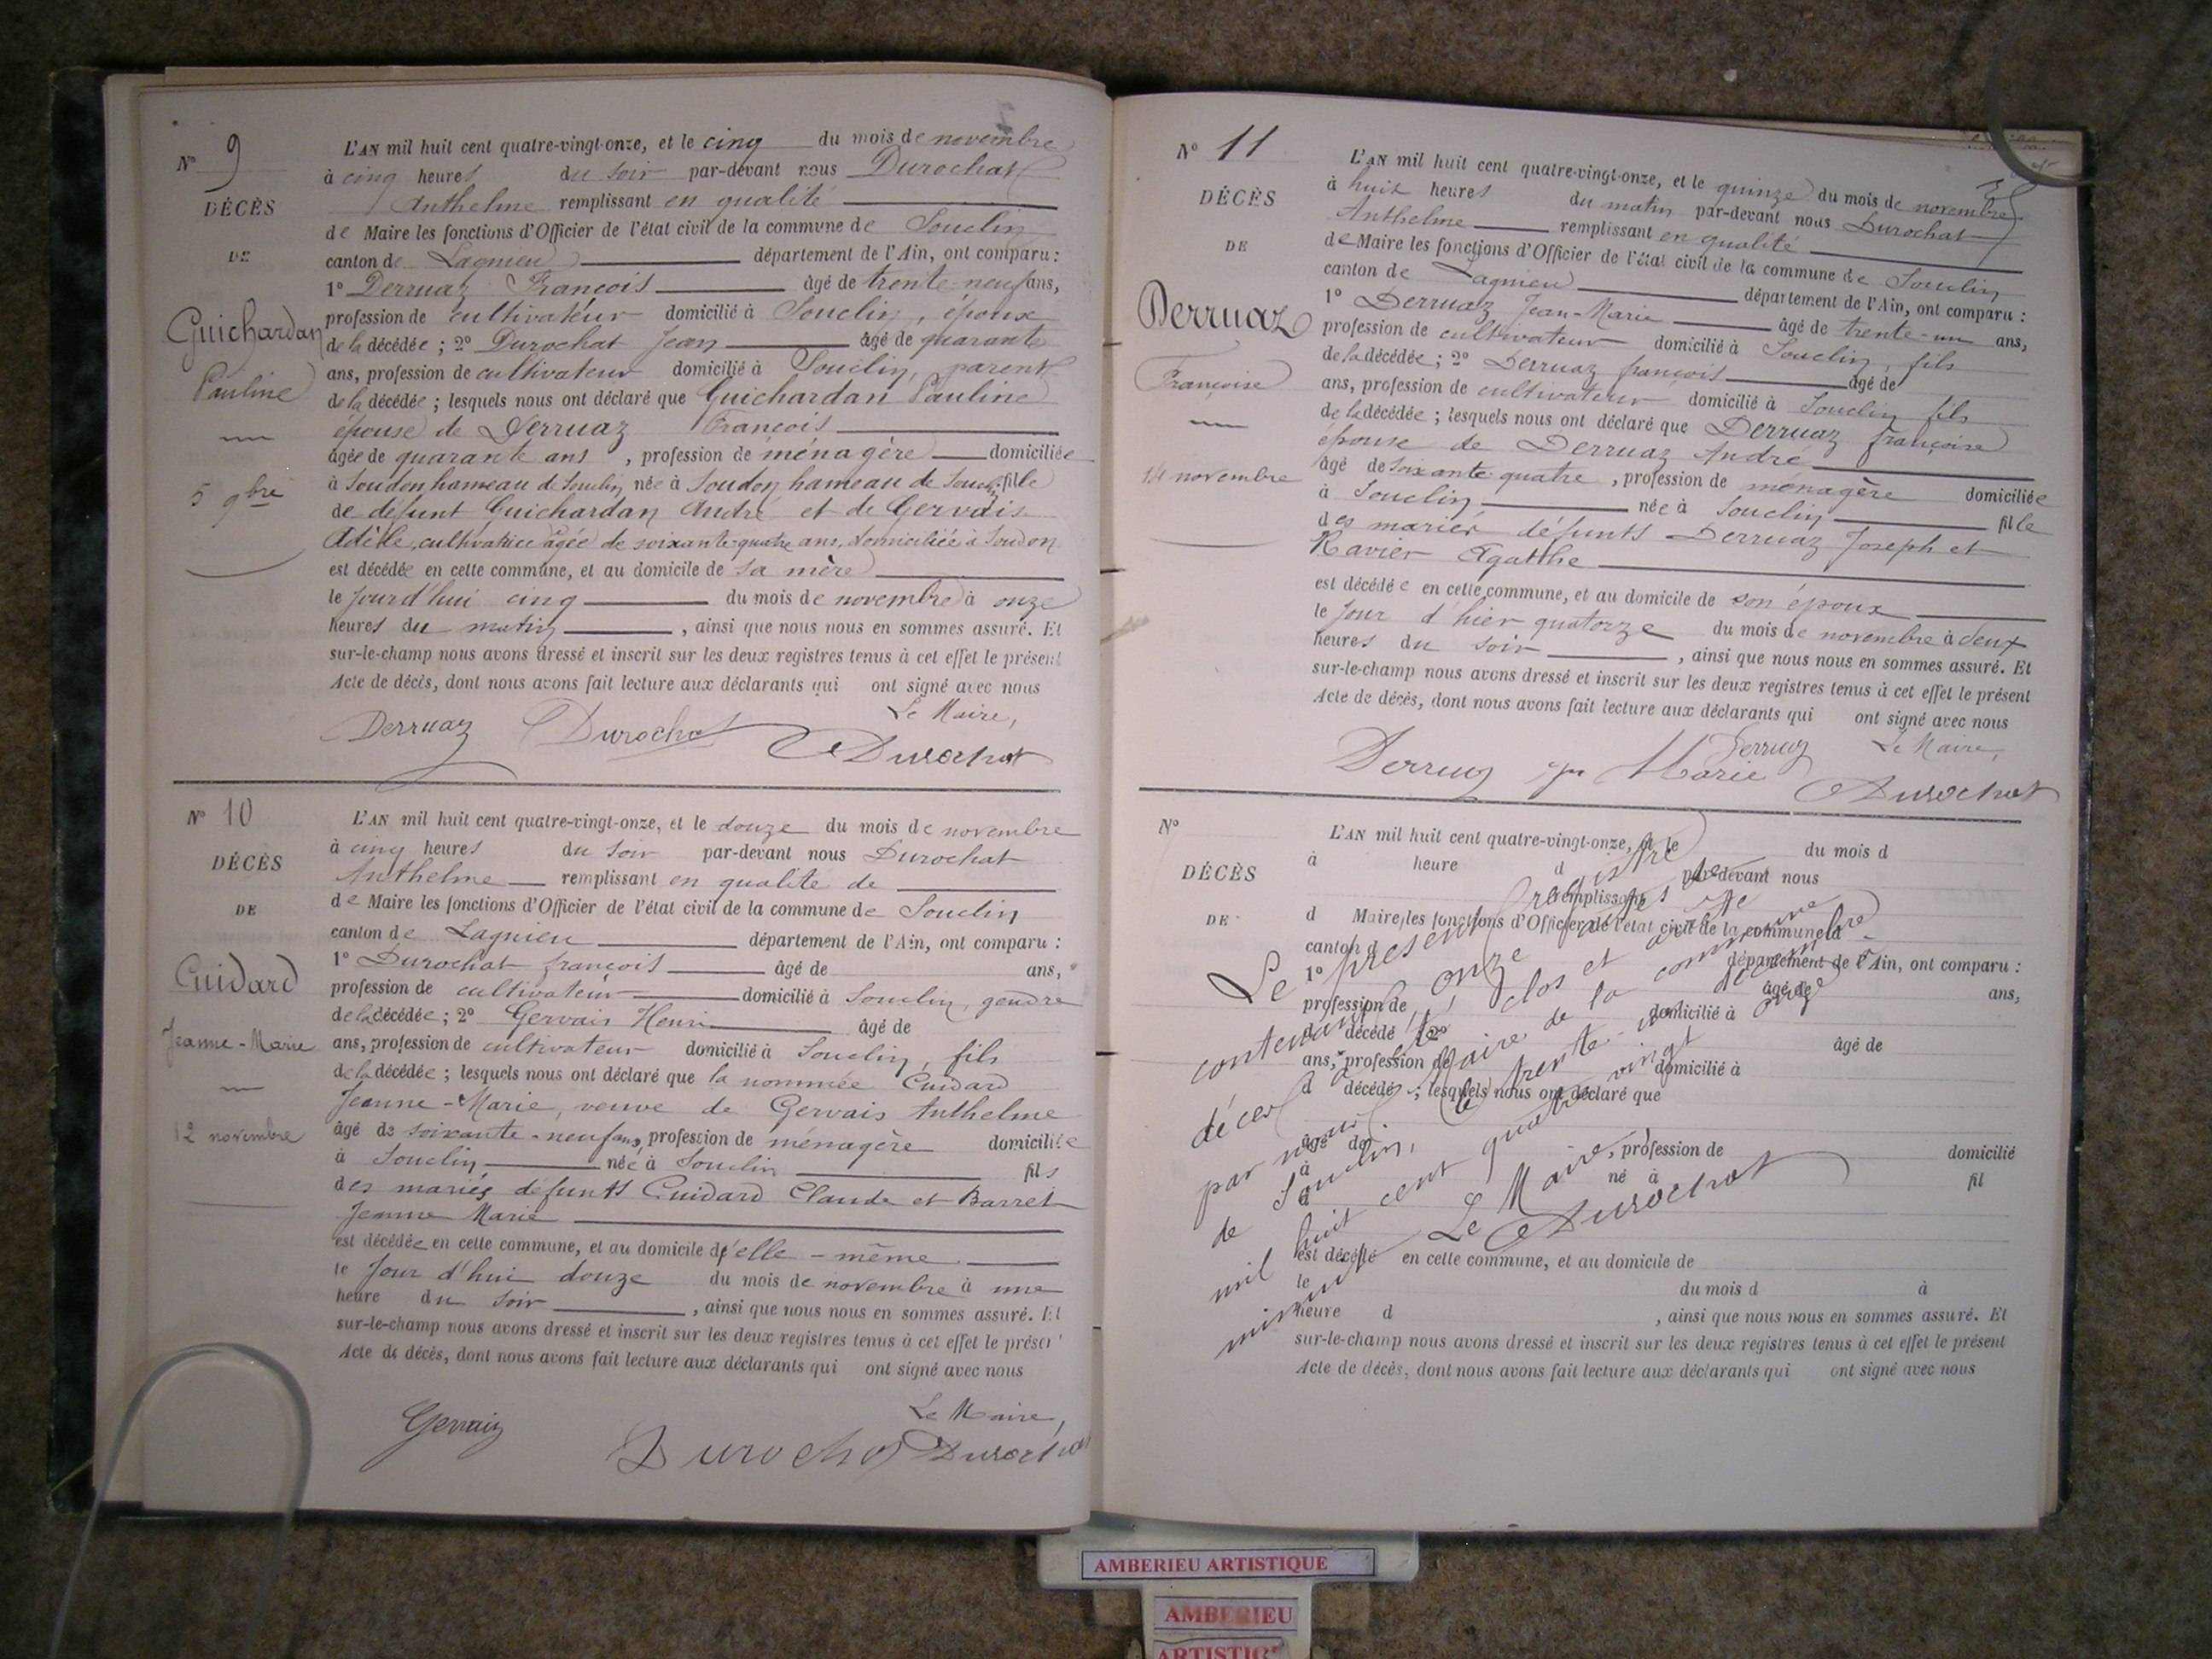 Nº 9
DÉCÈS
DE
Guichardan
Pauline
5 9bre
L'AN mil huit cent quatre-vingt-onze, et le cinq du mois de novembre
à cinq heures du soir par-devant nous Durochat
Anthelme remplissant en qualité
de Maire les fonctions d'Officier de l'état civil de la commune de Souclin
canton de Lagnieu département de l'Ain, ont comparu :
1º Derruaz François âgé de trente-neuf ans,
profession de cultivateur domicilié à Souclin, époux
de la décédée ; 2º Durochat Jean âgé de quarante
ans, profession de cultivateur domicilié à Souclin, parent
de la décédée ; lesquels nous ont déclaré que Guichardan Pauline
épouse de Derruaz François
âgée de quarante ans , profession de ménagère domiciliée
à Soudon hameau de Souclin née à Soudon hameau de Souclin fille
de défunt Guichardan André et de Gervais
Adèle, cultivatrice âgée de soixante-quatre ans, domiciliée à Soudon
est décédée en cette commune, et au domicile de sa mère
le jourd'hui cinq du mois de novembre à onze
heures du matin , ainsi que nous nous en sommes assuré. Et
sur-le-champ nous avons dressé et inscrit sur les deux registres tenus à cet effet le présent
Acte de décès, dont nous avons fait lecture aux déclarants qui ont signé avec nous
Le Maire,
Derruaz Durochat Durochat
Nº 10
DÉCÈS
DE
Cuidard
Jeanne-Marie
12 novembre
L'AN mil huit cent quatre-vingt-onze, et le douze du mois de novembre
à cinq heures du soir par-devant nous Durochat
Anthelme remplissant en qualité de
de Maire les fonctions d'Officier de l'état civil de la commune de Souclin
canton de Lagnieu département de l'Ain, ont comparu :
1º Durochat françois âgé de ans,
profession de cultivateur domicilié à Souclin, gendre
de la décédée ; 2º Gervais Henri âgé de
ans, profession de cultivateur domicilié à Souclin, fils
de la décédée ; lesquels nous ont déclaré que la nommée Cuidard
Jeanne-Marie, veuve de Gervais Anthelme
âgé de soixante-neuf ans, profession de ménagère domiciliée
à Souclin née à Souclin fils
des mariés défunts Cuidard Claude et Barret
Jeanne Marie
est décédée en cette commune, et au domicile d'elle-même
le jour d'hui douze du mois de novembre à une
heure du soir , ainsi que nous nous en sommes assuré. Et
sur-le-champ nous avons dressé et inscrit sur les deux registres tenus à cet effet le présen
Acte de décès, dont nous avons fait lecture aux déclarants qui ont signé avec nous
Le Maire,
Gervais Durochat Durochat
Nº 11
DÉCÈS
DE
Derruaz
Françoise
14 novembre
L'AN mil huit cent quatre-vingt-onze, et le quinze du mois de novembre
à huit heures du matin par-devant nous Durochat
Anthelme remplissant en qualité
de Maire les fonctions d'Officier de l'état civil de la commune de Souclin
canton de Lagnieu département de l'Ain, ont comparu :
1º Derruaz Jean-Marie âgé de trente-un ans,
profession de cultivateur domicilié à Souclin, fils
de la décédée ; 2º Derruaz françois âgé de
ans, profession de cultivateur domicilié à Souclin fils
de la décédée ; lesquels nous ont déclaré que Derruaz françoise
épouse de Derruaz André
âgé de soixante-quatre , profession de ménagère domiciliée
à Souclin née à Souclin fille
des mariés défunts Derruaz Joseph et
Ravier Agatthe
est décédée en cette commune, et au domicile de son époux
le jour d'hier quatorze du mois de novembre à deux
heures du soir , ainsi que nous nous en sommes assuré. Et
sur-le-champ nous avons dressé et inscrit sur les deux registres tenus à cet effet le présent
Acte de décès, dont nous avons fait lecture aux déclarants qui ont signé avec nous
Le Maire,
Derruaz Marie Derruaz
Durochat
Nº
DÉCÈS
DE
L'AN mil huit cent quatre-vingt-onze, et le du mois d
à heure d par-devant nous
remplissant
d Maire les fonctions d'Officier de l'état civil de la commune d
canton d département de l'Ain, ont comparu :
1º âgé de ans,
profession de domicilié à
d décédé 2º âgé de
ans, profession de domicilié à
d décédé ; lesquels nous ont déclaré que
âgé de , profession de domicilié
à né à fil
d
est décédé en cette commune, et au domicile de
le du mois d à
heure d , ainsi que nous nous en sommes assuré. Et
sur-le-champ nous avons dressé et inscrit sur les deux registres tenus à cet effet le présent
Acte de décès, dont nous avons fait lecture aux déclarants qui ont signé avec nous
Le présent registre
contenant onze actes de
décès a été clos et arrêté
par nous Maire de la commune
de Souclin, le trente-un décembre
mil huit cent quatre vingt onze
minuit
Le Maire,
Durochat
AMBERIEU ARTISTIQUE
AMBERIEU
ARTISTIQ